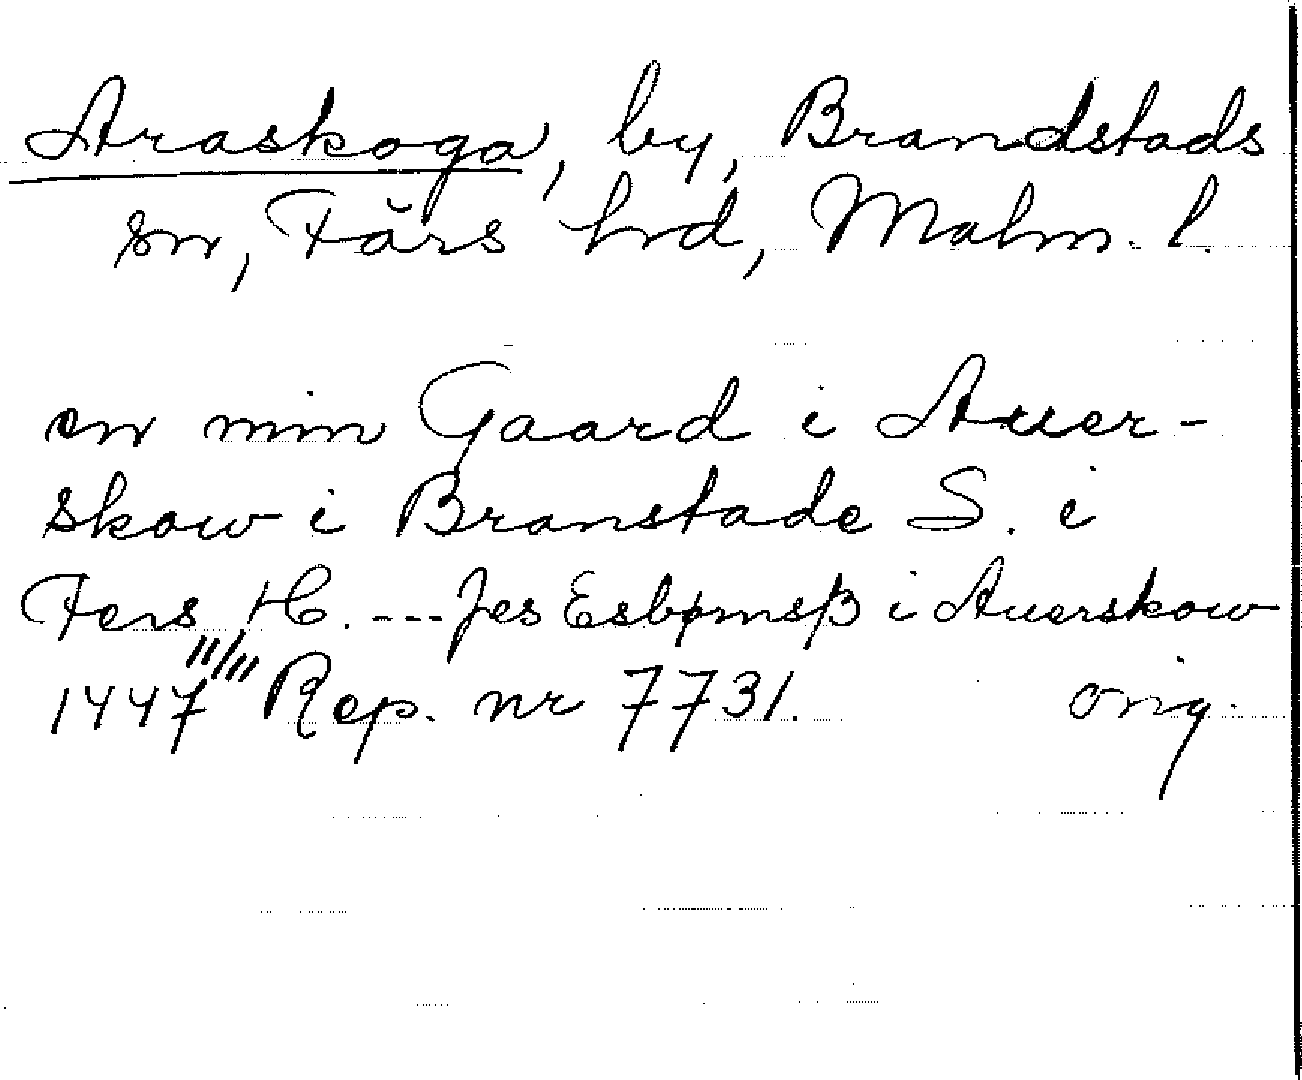 Araskoga, by, Brandstads
sn, Färs hrd, Malm. l.
en min Gaard i Auer-
skow i Branstade S. i
Fers H. --- Jes Esbørnsß i Auerskow
1447 11/11 Rep. nr 7731. orig.